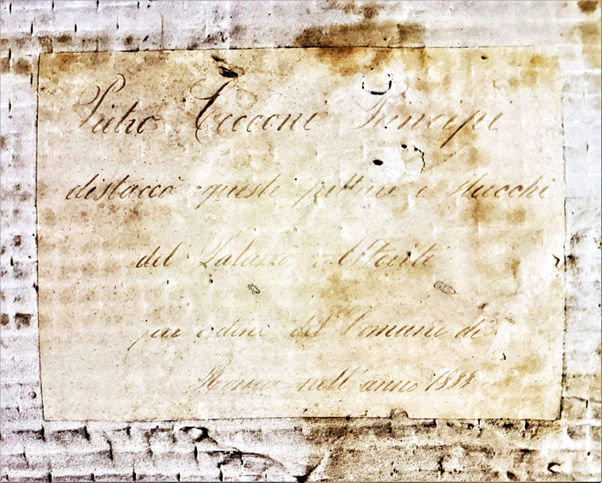 Pietro Cecconi Principi
distaccò queste pitture e stucchi
del Palazzo Altoviti
per ordine del Comune di
Roma nell'anno 1888